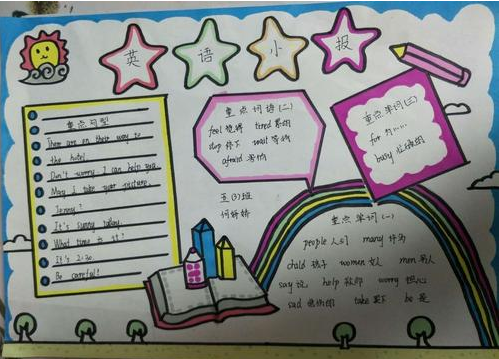 英语小报
重点句型
There are on their way to
the hotel
Don't worry. I can help you.
May I take your picture,
Jenny?
It's sunny today.
What time is it?
It's 2:30.
Be careful!
重点词语(二)
feel 觉得 tired 累的
stop 停下 wait 等待
afraid 害怕
重点单词(三)
for 为……
busy 忙碌的
五(3)班
重点单词(一)
people 人们 many 许多
child 孩子 women 女人 men 男人
say 说 help 帮助 worry 担心
sad 悲伤的 take 买下 be 是